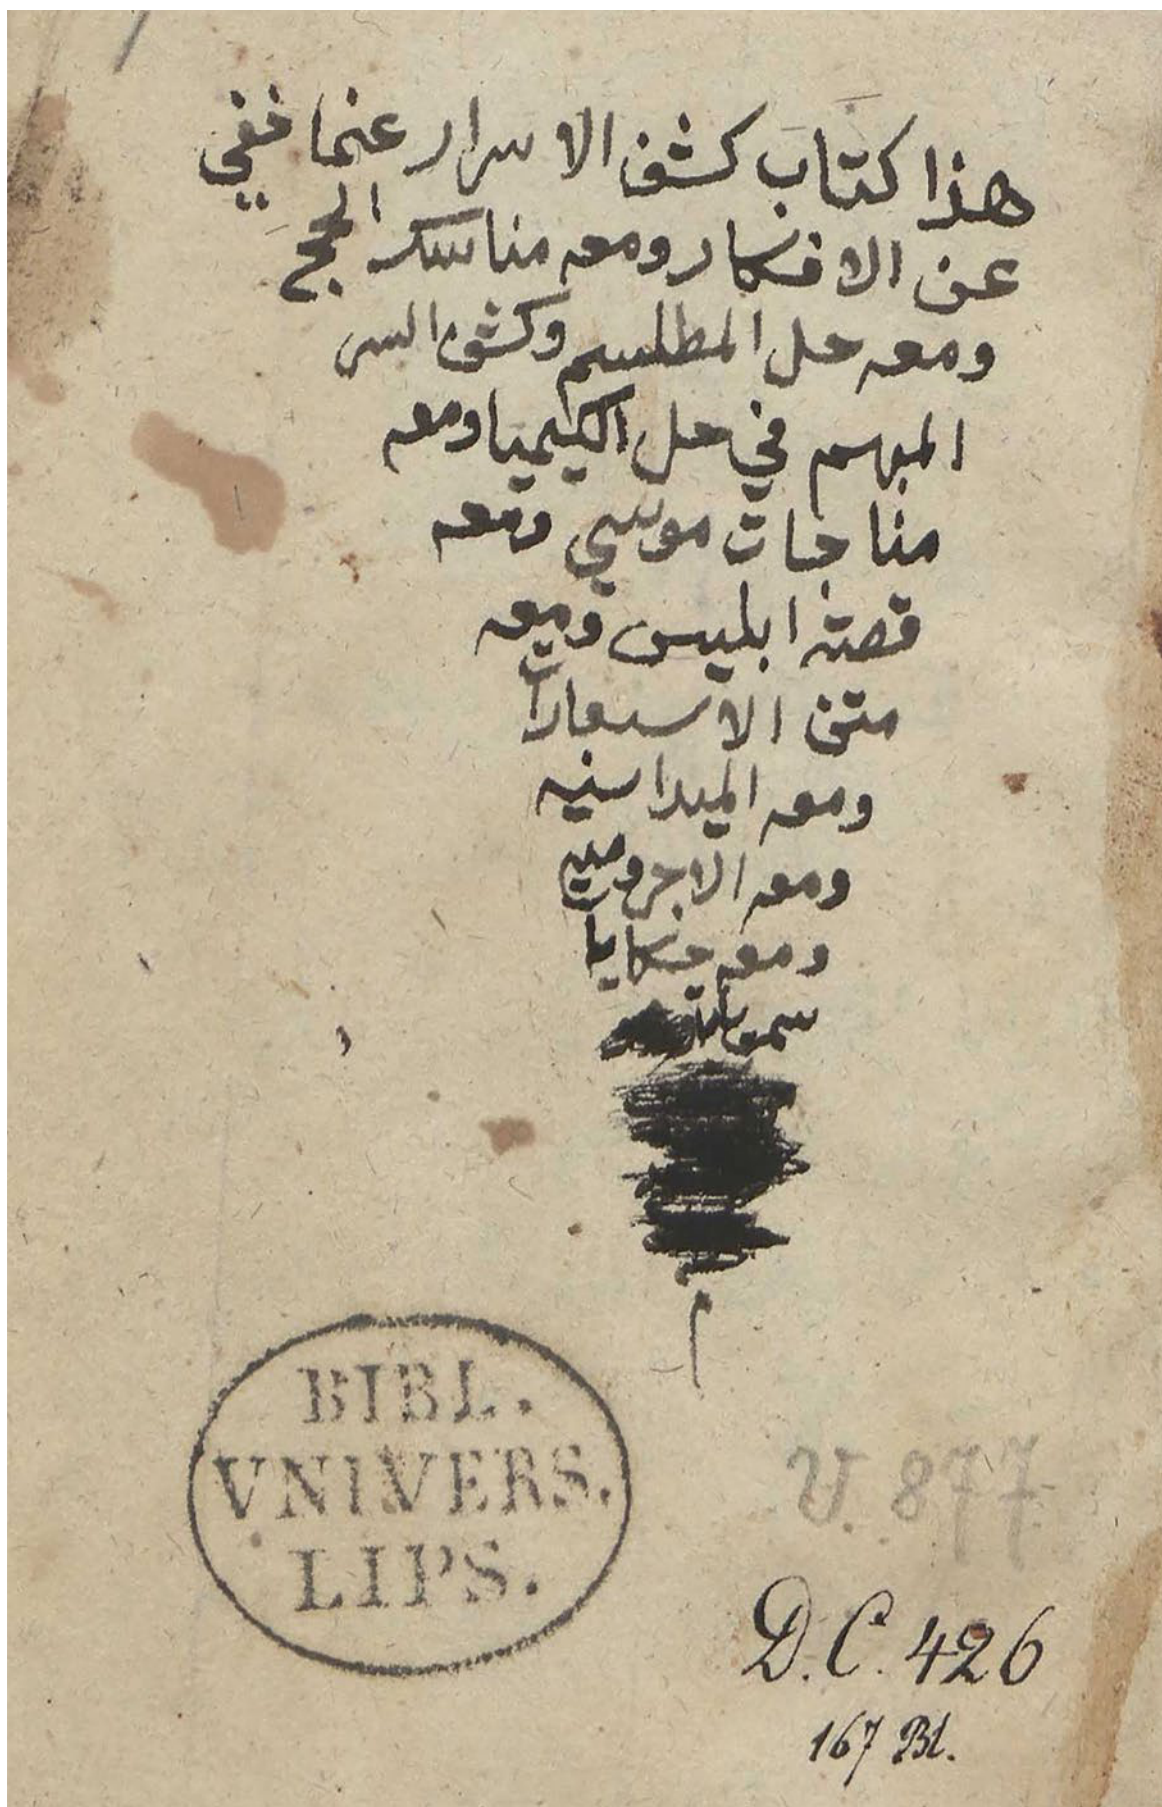 هذا كتاب كشف الاسرار عنما خفي
عن الافكار ومعه مناسك الحج
ومعه حل المطلسم وكشف السر
المبهم في حل الكيميا ومعه
مناجات موسي ومعه
قصة ابليس ومعه
متن الاسعارات
ومعه الميدانيه
ومعه الاجروميه
ومعه حكايات
BIBL.
VNIVERS.
LIPS.
V. 877
D.C. 426
167 Bl.